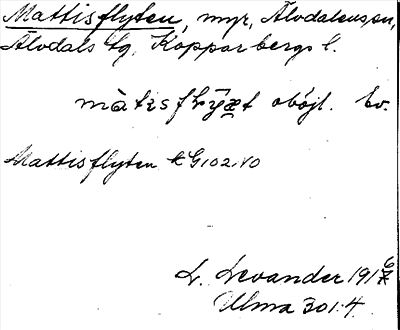 Mattisflyten, myr, Älvdalens sn,
Älvdals tg, Kopparbergs l.
oböjl. Ev.
Mattisflyten EG 102:40
L. Levander 1916
Ulma 301:4.